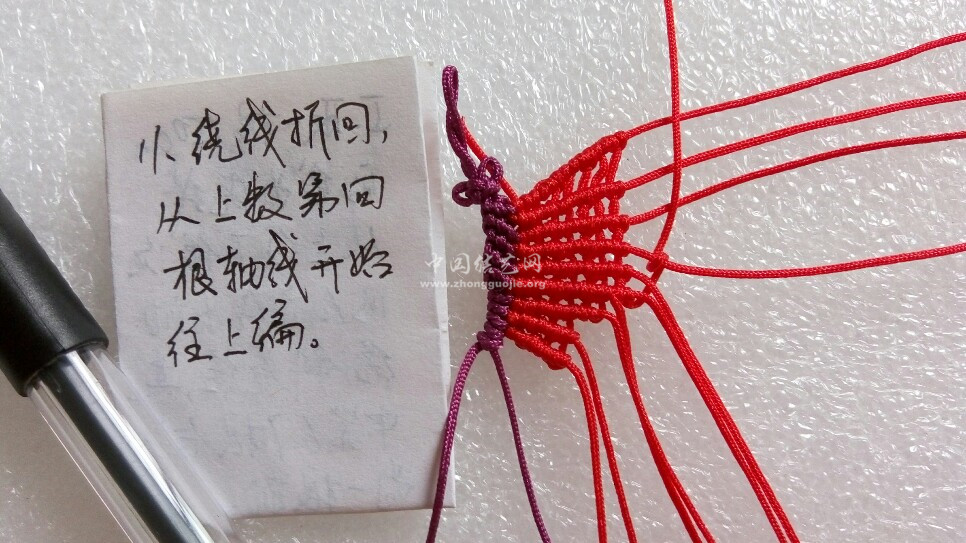 11、绕线折回,
从上数第四
根轴线开始
往上编。
中国结艺网
www.zhongguojie.org